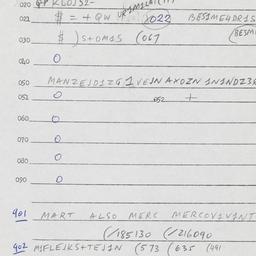 020
021 $ = + QW 2022 BE51ME4DR15
030 $ ) S+OM15 (067
040 0
050 MANZEJD1ZG1VEJN AXOZN 1N1NDZ3
051 0 052 +
060 0
070 0
080 0
090 0
401 MART ALSO MERC MERCOV1V1NT
(/185130 (/216090
402 MFLEJKS+TEJ1N (573 (635 (491